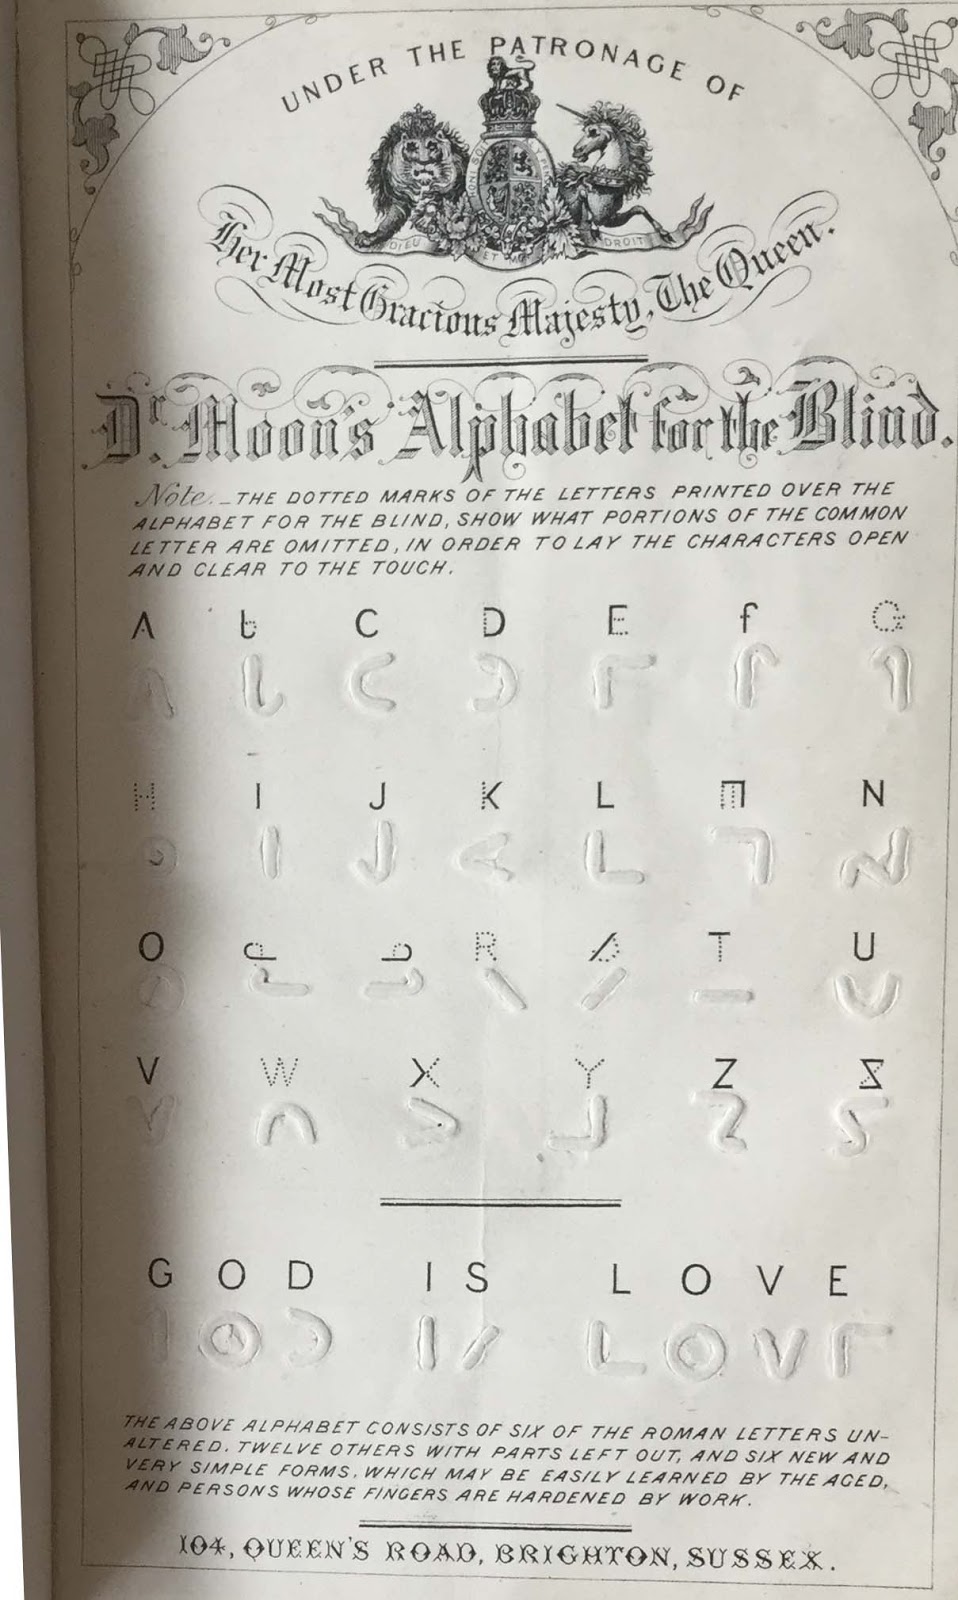 UNDER THE PATRONAGE OF
HONI SOI
DIEU ET MON DROIT
Her Most Gracious Majesty, The Queen.
Dr. Moon's Alphabet for the Blind.
Note._THE DOTTED MARKS OF THE LETTERS PRINTED OVER THE
ALPHABET FOR THE BLIND, SHOW WHAT PORTIONS OF THE COMMON
LETTER ARE OMITTED, IN ORDER TO LAY THE CHARACTERS OPEN
AND CLEAR TO THE TOUCH.
A b C D E f G
H I J K L M N
O P b R S T U
V W X Y Z &
GOD IS LOVE
THE ABOVE ALPHABET CONSISTS OF SIX OF THE ROMAN LETTERS UN-
ALTERED. TWELVE OTHERS WITH PARTS LEFT OUT, AND SIX NEW AND
VERY SIMPLE FORMS. WHICH MAY BE EASILY LEARNED BY THE AGED,
AND PERSONS WHOSE FINGERS ARE HARDENED BY WORK.
104, QUEEN'S ROAD, BRIGHTON, SUSSEX.